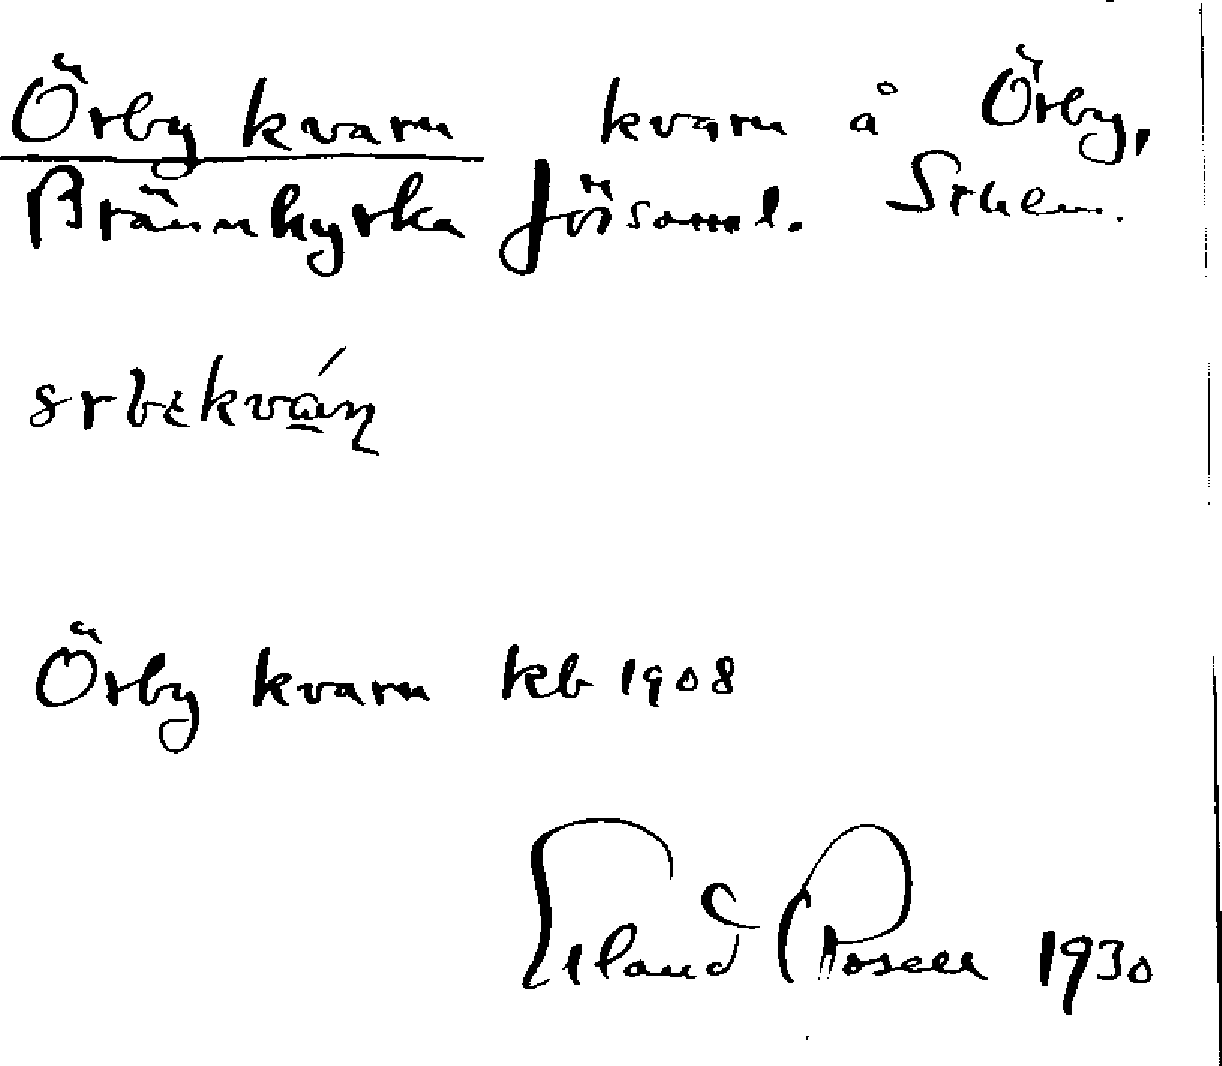 Örby kvarn kvarn å Örby,
Brännkyrka förs aml. Sthlm.
Örby kvarn kb 1908
Erland Rosell 1930